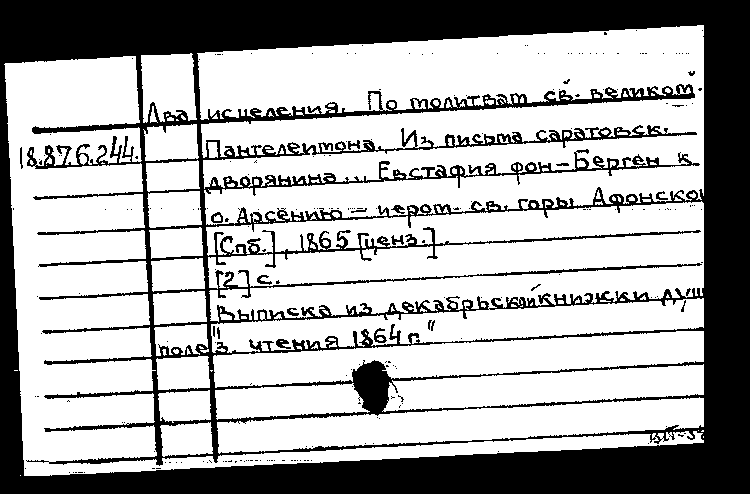 Два исцеления. По молитвам св. великом.
18.876.244.
Пантелеимона. Из письма саратовск.
дворянина... Евстафия фон-Берген к
о. Арсению – иером. св. горы Афонской
[Спб.], 1865 [ценз.].
[2] с.
"Выписка из декабрьской книжки душ
полез. чтения 1864 г."